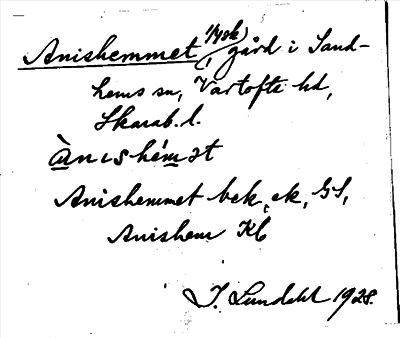 Anishemmet, gård i Sand-
hems sn, Vartofte hd,
Skarab. l.
ànıshémət
Anishemmet bek, ek, GS,
Anishem Kb
I. Lundahl 1928.